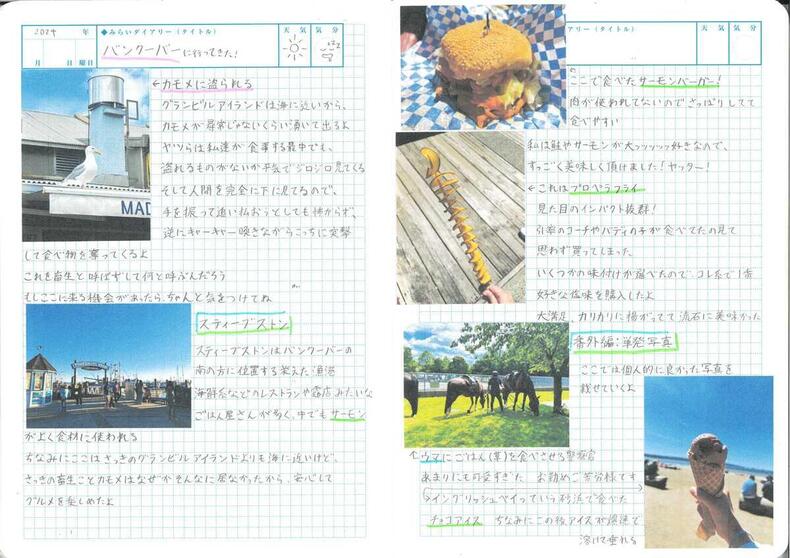 2024 年
月 日 曜日
◆みらいダイアリー(タイトル)
バンクーバーに行ってきた!
天気 気分
zzz
←カモメに盗られる
グランビルアイランドは海に近いから、
カモメが尋常じゃないくらい湧いて出るよ
ヤツらは私達が食事する最中でも、
盗れるものがないか平気でジロジロ見てくる
そして人間を完全に下に見てるので、
手を振って追い払おうとしても怖がらず、
逆にキャーキャー喚きながらこっちに突撃
して食べ物を奪ってくるよ
これを畜生と呼ばずして何と呼ぶんだろう
もしここに来る機会があったら、ちゃんと気をつけてね
MAD
スティーブストン
スティーブストンはバンクーバーの
南の方に位置する栄えた漁港
海鮮系などのレストランや露店みたいな
ごはん屋さんが多く、中でもサーモン
がよく食材に使われる
ちなみにここはさっきのグランビルアイランドよりも海に近いけど、
さっきの畜生ことカモメはなぜかそんなに居なかったから、安心して
グルメを楽しめたよ
アリー(タイトル)
天気 気分
ここで食べたサーモンバーガー!
肉が使われてないのでさっぱりしてて
食べやすい
私は鮭やサーモンが大ッッッッッ好きなので、
すっごく美味しく頂けました!ヤッター!
←これはプロペラフライ
見た目のインパクト抜群!
引率のコーチやバディの子が食べてたの見て
思わず買ってしまった
いくつかの味付けが選べたので、コレ系で1番
好きな塩味を購入したよ
大満足、カリカリに揚がってて流石に美味かった
番外編:単発写真
ここでは個人的に良かった写真を
載せていくよ
↑ウマにごはん(草)を食べさせる警察官
あまりにも可愛すぎた お勤めご苦労様です
イングリッシュベイっていう砂浜で食べた
チョコアイス ちなみにこの後アイスが爆速で
溶けて垂れる